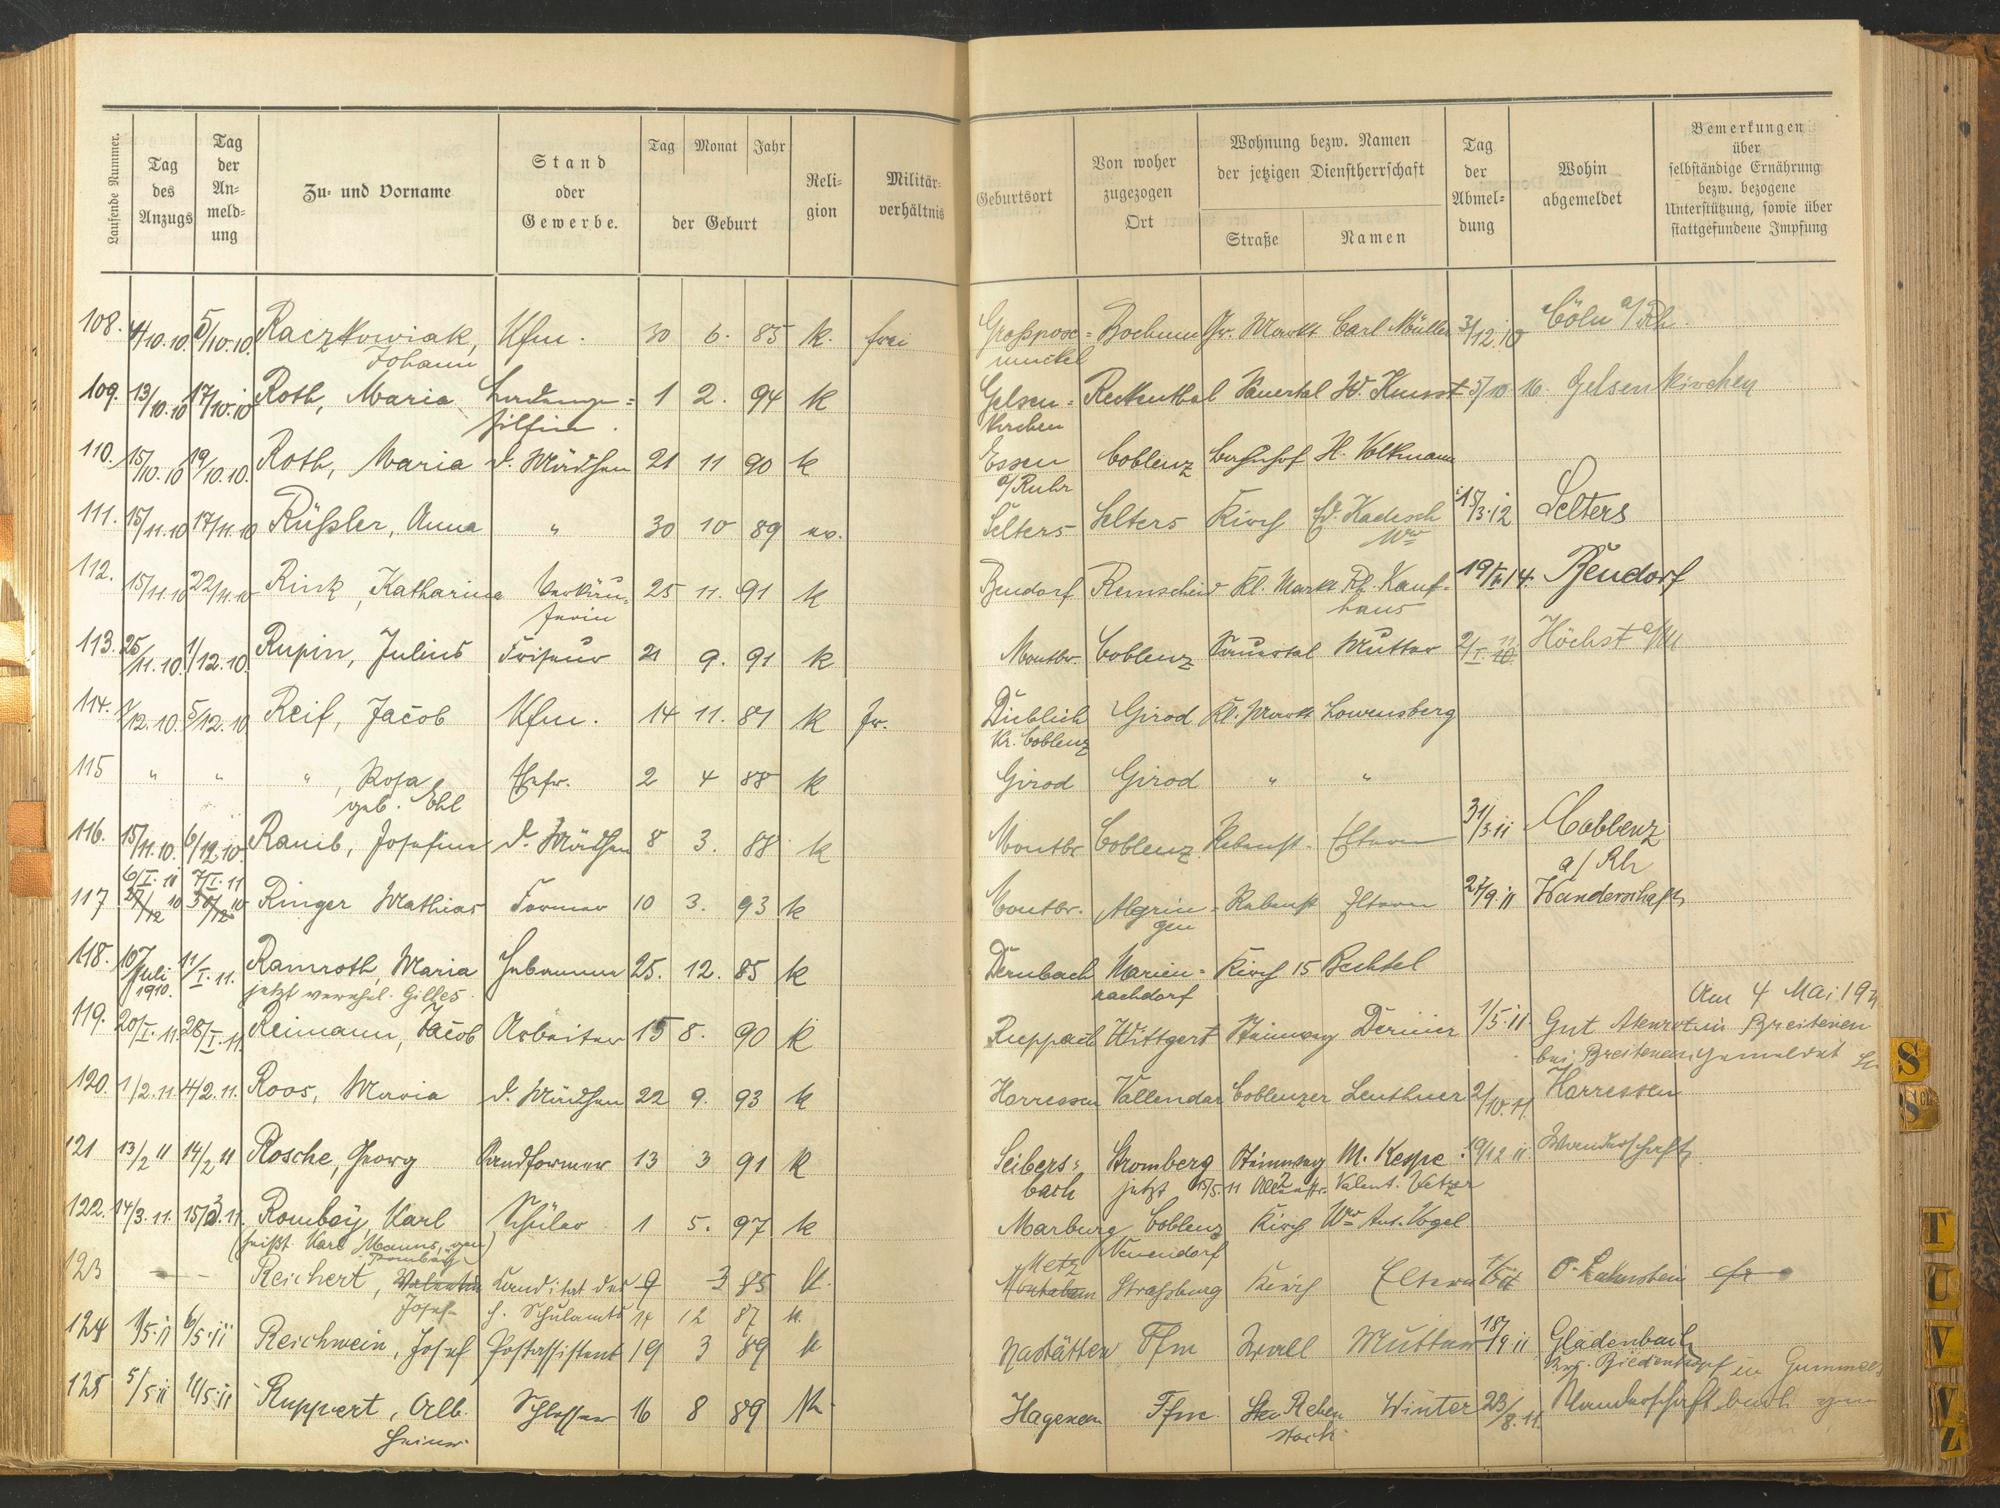 Laufende Nummer.
Tag des Anzugs
Tag der Anmeldung
Zu- und Vorname
Stand oder Gewerbe.
Tag Monat Jahr der Geburt
Religion
Militärverhältnis
Geburtsort
Von woher zugezogen Ort
Wohnung bezw. Namen der jetzigen Dienstherrschaft
Straße Namen
Tag der Abmeldung
Wohin abgemeldet
Bemerkungen über selbständige Ernährung bezw. bezogene Unterstützung, sowie über stattgefundene Impfung
108. 4/10.10. 5/10.10. Raczkowiak, Kfm. 30 6. 85 k. frei Bochum Gr. Markt Carl Müller 3/12.10 Cöln a/Rh.
Johann
109. 13/10.10 17/10.10 Roth, Maria 1 2. 94 k Gelsen- Sauertal W. Kunst 16. Gelsenkirchen
hilfin. kirchen
110. 15/10.10 19/10.10. Roth, Maria d. Mädchen 21 11 90 k Essen Coblenz Bahnhof H. Volkmann
a/Ruhr
111. 15/11.10 17/11.10 Rüßler, Anna " 30 10 89 ev. Selters Selters Kirch Ed. Kadesch 15/3.12 Selters
Ww
112. 15/11.10 22/11.10 Rink, Katharina Verkäu- 25 11. 91 k Bendorf Remscheid Kl. Markt Rh. Kauf- 14. Bendorf
ferin haus
113. 25/11.10 1/12.10. Rupin, Julius Friseur 21 9. 91 k Montbr. Coblenz Sauertal Mutter 2/I. 11 Höchst a/M
114. 5/12.10 Reif, Jacob Kfm. 14 11. 81 k fr. Dieblich Girod Kl. Markt Lowensberg
Kr. Coblenz
115 " " " , Rosa Ehefr. 2 4 88 k Girod Girod " "
geb. Ehl
116. 15/11.10. 6/12.10. Raub, Josefine d. Mädchen 8 3. 88 k Montbr Coblenz Rebenst. Eltern 31/3.11 Coblenz
a/Rh
6/I. 11 7/I. 11
117 Ringer Mathias Former 10 3. 93 k Montbr. Algrin- Rebenst Eltern 27/9.11 Wanderschaft
gen
118. 11/I. 11. Ramroth, Maria Hebamme 25. 12. 85 k Dernbach Marien- Kirch 15 Bechtel
Juli 1910. jetzt verehel. Gilles. rachdorf
Am 4. Mai
119. 20/I. 11. 28/I. 11. Reimann, Jacob Arbeiter 15 8. 90 k Ruppach Wittgert Steinweg 1/5.11 Gut
bei gemeldet
120. 1/2.11 4/2.11. Roos, Maria d. Mädchen 22 9. 93 k Horressen Vallendar Coblenzer Leuthner 2/10.11. Horressen
121 13/2 11 14/2 11 Rosche, Georg Sandformer 13 3 91 k Seibers- Stromberg Steinweg M. Keppe. 19/12 11. Wanderschaft
bach jetzt 15/5.11 Valent.
122. 14/3.11. 15/3.11. Rombey, Karl Schüler 1 5. 97 k Marburg Coblenz Kirch Ww Ant. Vogel
(heißt Karl Manns, gen. Neuendorf
Rombey) Metz
123 Reichert, Valentin Kandidat des 9 3 85 k. Montabaur Straßburg Kirch Eltern O-Lahnstein
Josef h. Schulamts 14 12 87 k.
124 1/5.11 6/5.11 Reichwein, Josef Postassistent 19 3 89 k Nastätten Ffm Wall Mutter 18/9 11 Gladenbach
Biedenkopf
125 5/5 11 11/5.11 Ruppert, Alb. Schlosser 16 8 89 k. Ffm Reben Winter 23/8.11. Wanderschaft
Heinr. stock.
S
Sch
T
U
V
W
Z